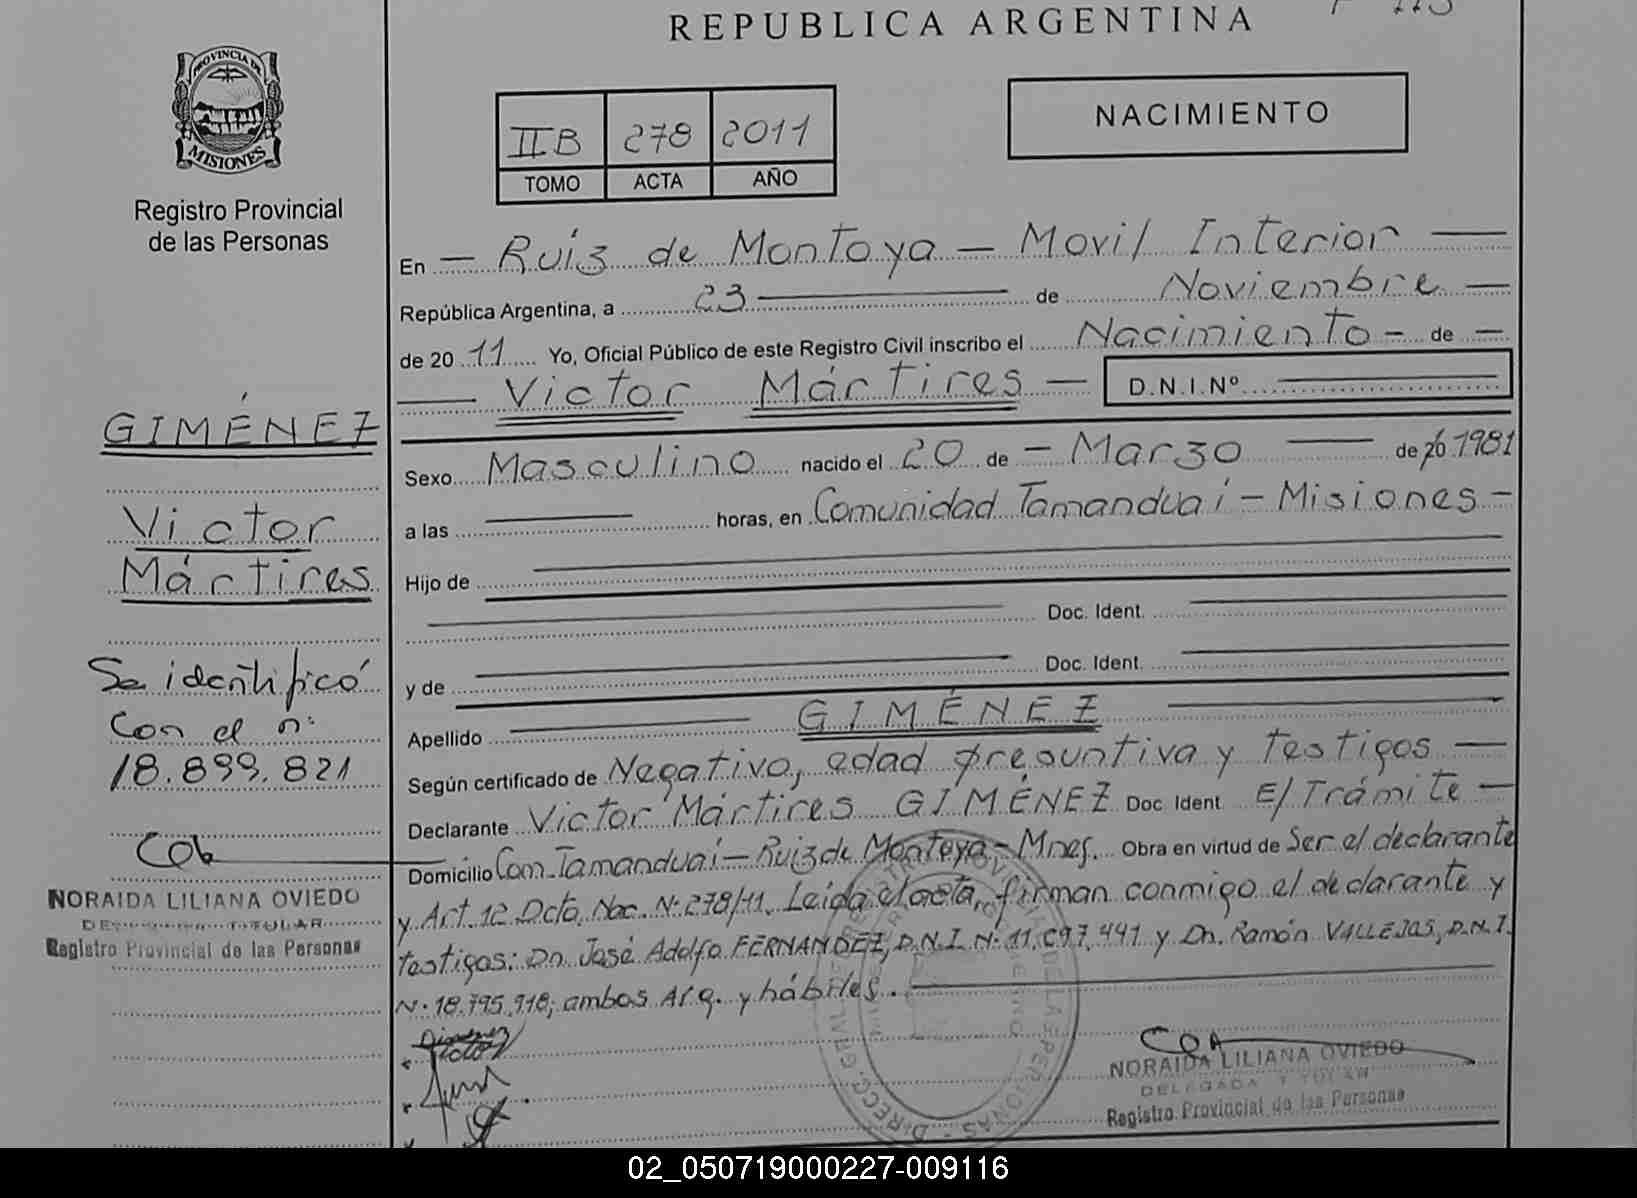 REPUBLICA ARGENTINA
PROVINCIA DE
MISIONES
Registro Provincial
de las Personas
II B 278 2011
TOMO ACTA AÑO
NACIMIENTO
En — Ruiz de Montoya — Movil Interior —
República Argentina, a 23 — de Noviembre —
de 20 11 Yo, Oficial Público de este Registro Civil inscribo el Nacimiento - de —
— Victor Mártires — D.N.I. Nº —
Sexo Masculino nacido el 20 de - Marzo — de 20 1981
a las — horas, en Comunidad Tamanduaí - Misiones -
Hijo de —
— Doc. Ident. —
y de — Doc. Ident. —
Apellido — GIMÉNEZ —
Según certificado de Negativo, edad presuntiva y testigos —
Declarante Victor Mártires GIMÉNEZ Doc. Ident E/ Trámite —
Domicilio Com. Tamanduaí - Ruiz de Montoya - Mnes. Obra en virtud de Ser el declarante
y Art. 12 Dcto. Nac. N· 278/11. Leída el acta, firman conmigo el declarante y
testigos: Dn. José Adolfo FERNANDEZ, D.N.I. N· 11.697.441 y Dn. Ramón VALLEJOS, D.N.I.
N· 18.795.918; ambos Arg. y hábiles. —
Giménez
Victor
NORAIDA LILIANA OVIEDO
DELEGADA TITULAR
Registro Provincial de las Personas
GIMÉNEZ
Victor
Mártires
Se identificó
Con el n·
18.899.821
NORAIDA LILIANA OVIEDO
DELEGADA TITULAR
Registro Provincial de las Personas
02_050719000227-009116